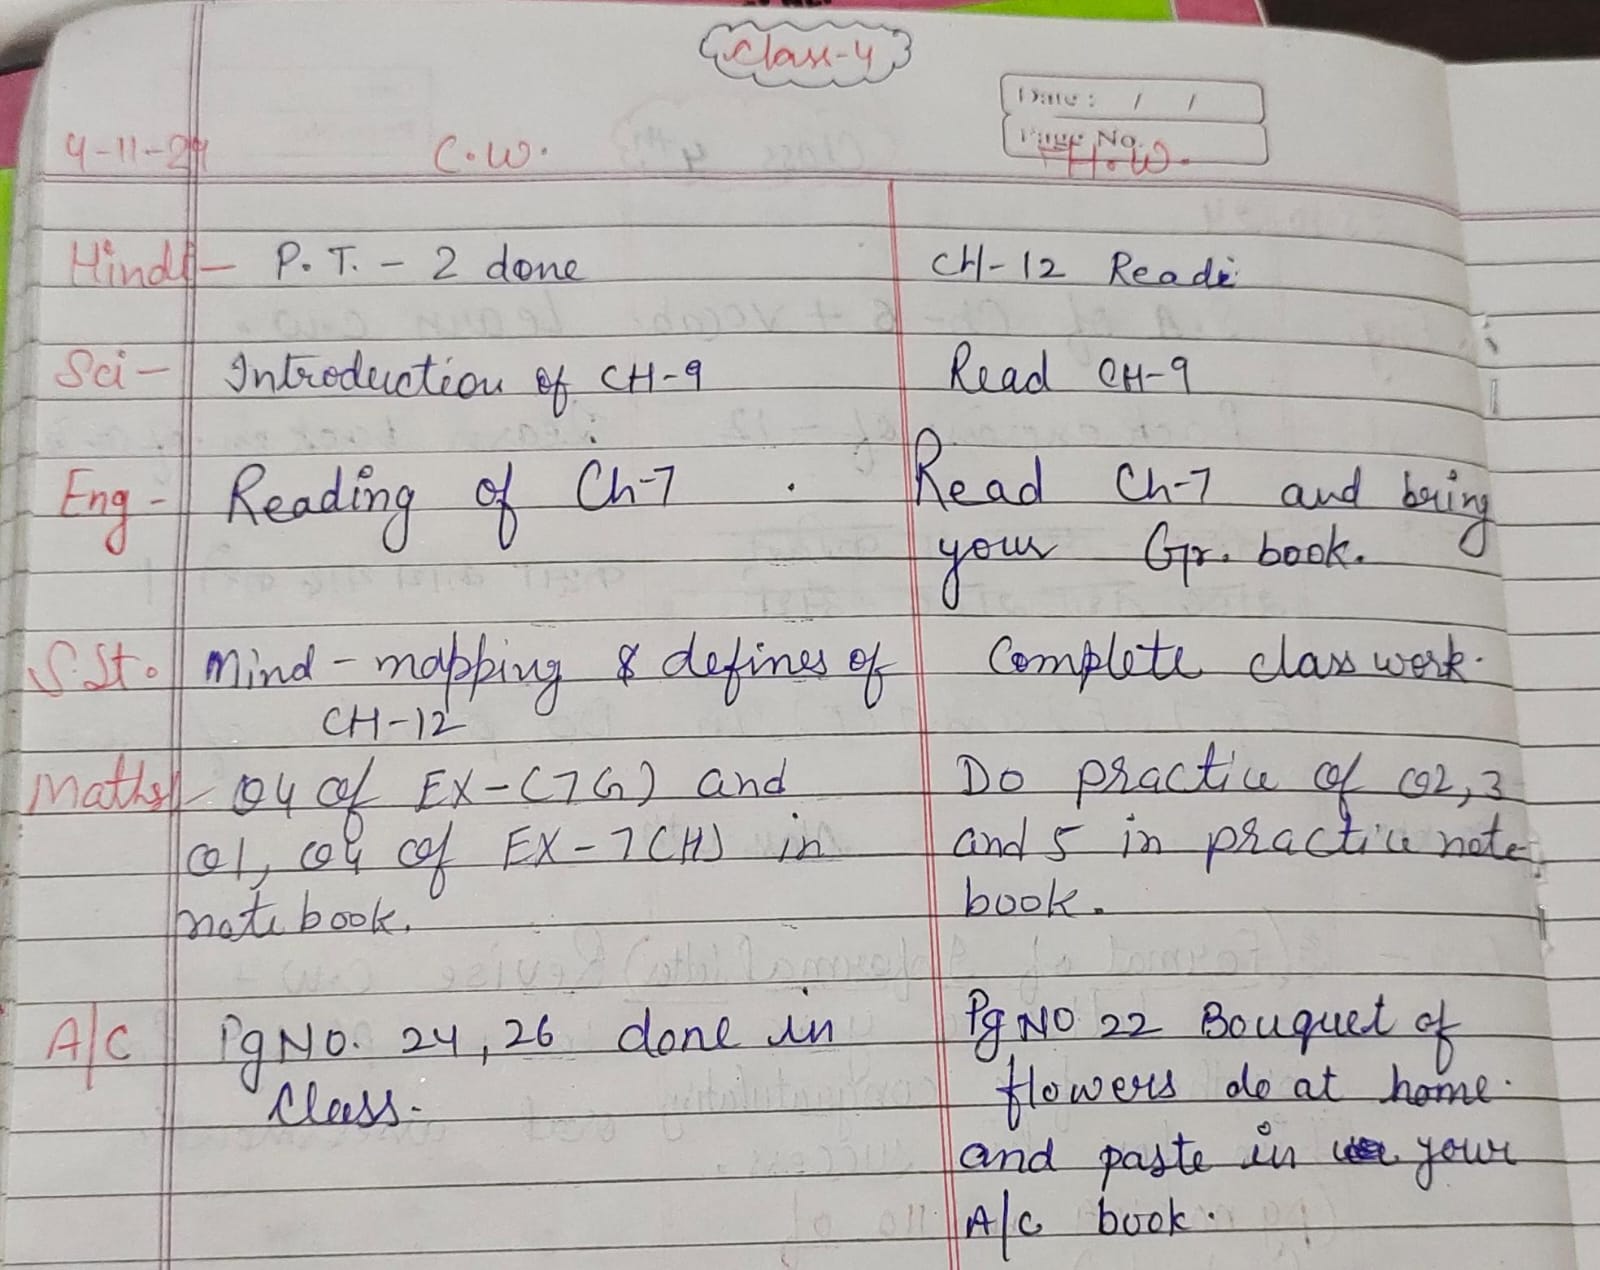 Class-4
Date : / /
Page No.
4-11-24 C.W. H.W.
Hindi- P.T. - 2 done CH-12 Read
Sci- Introduction of CH-9 Read CH-9
Eng- Reading of Ch-7 . Read Ch-7 and bring
your Gr. book.
S.St. Mind-mapping & defines of Complete class work.
CH-12
Maths- Q4 of EX-(7G) and Do practice of Q2,3
Q1, Q4 of EX-7(H) in and 5 in practice note
notebook. book.
A/C Pg NO. 24, 26 done in Pg NO 22 Bouquet of
Class. flowers do at home.
and paste in your
A/C book.